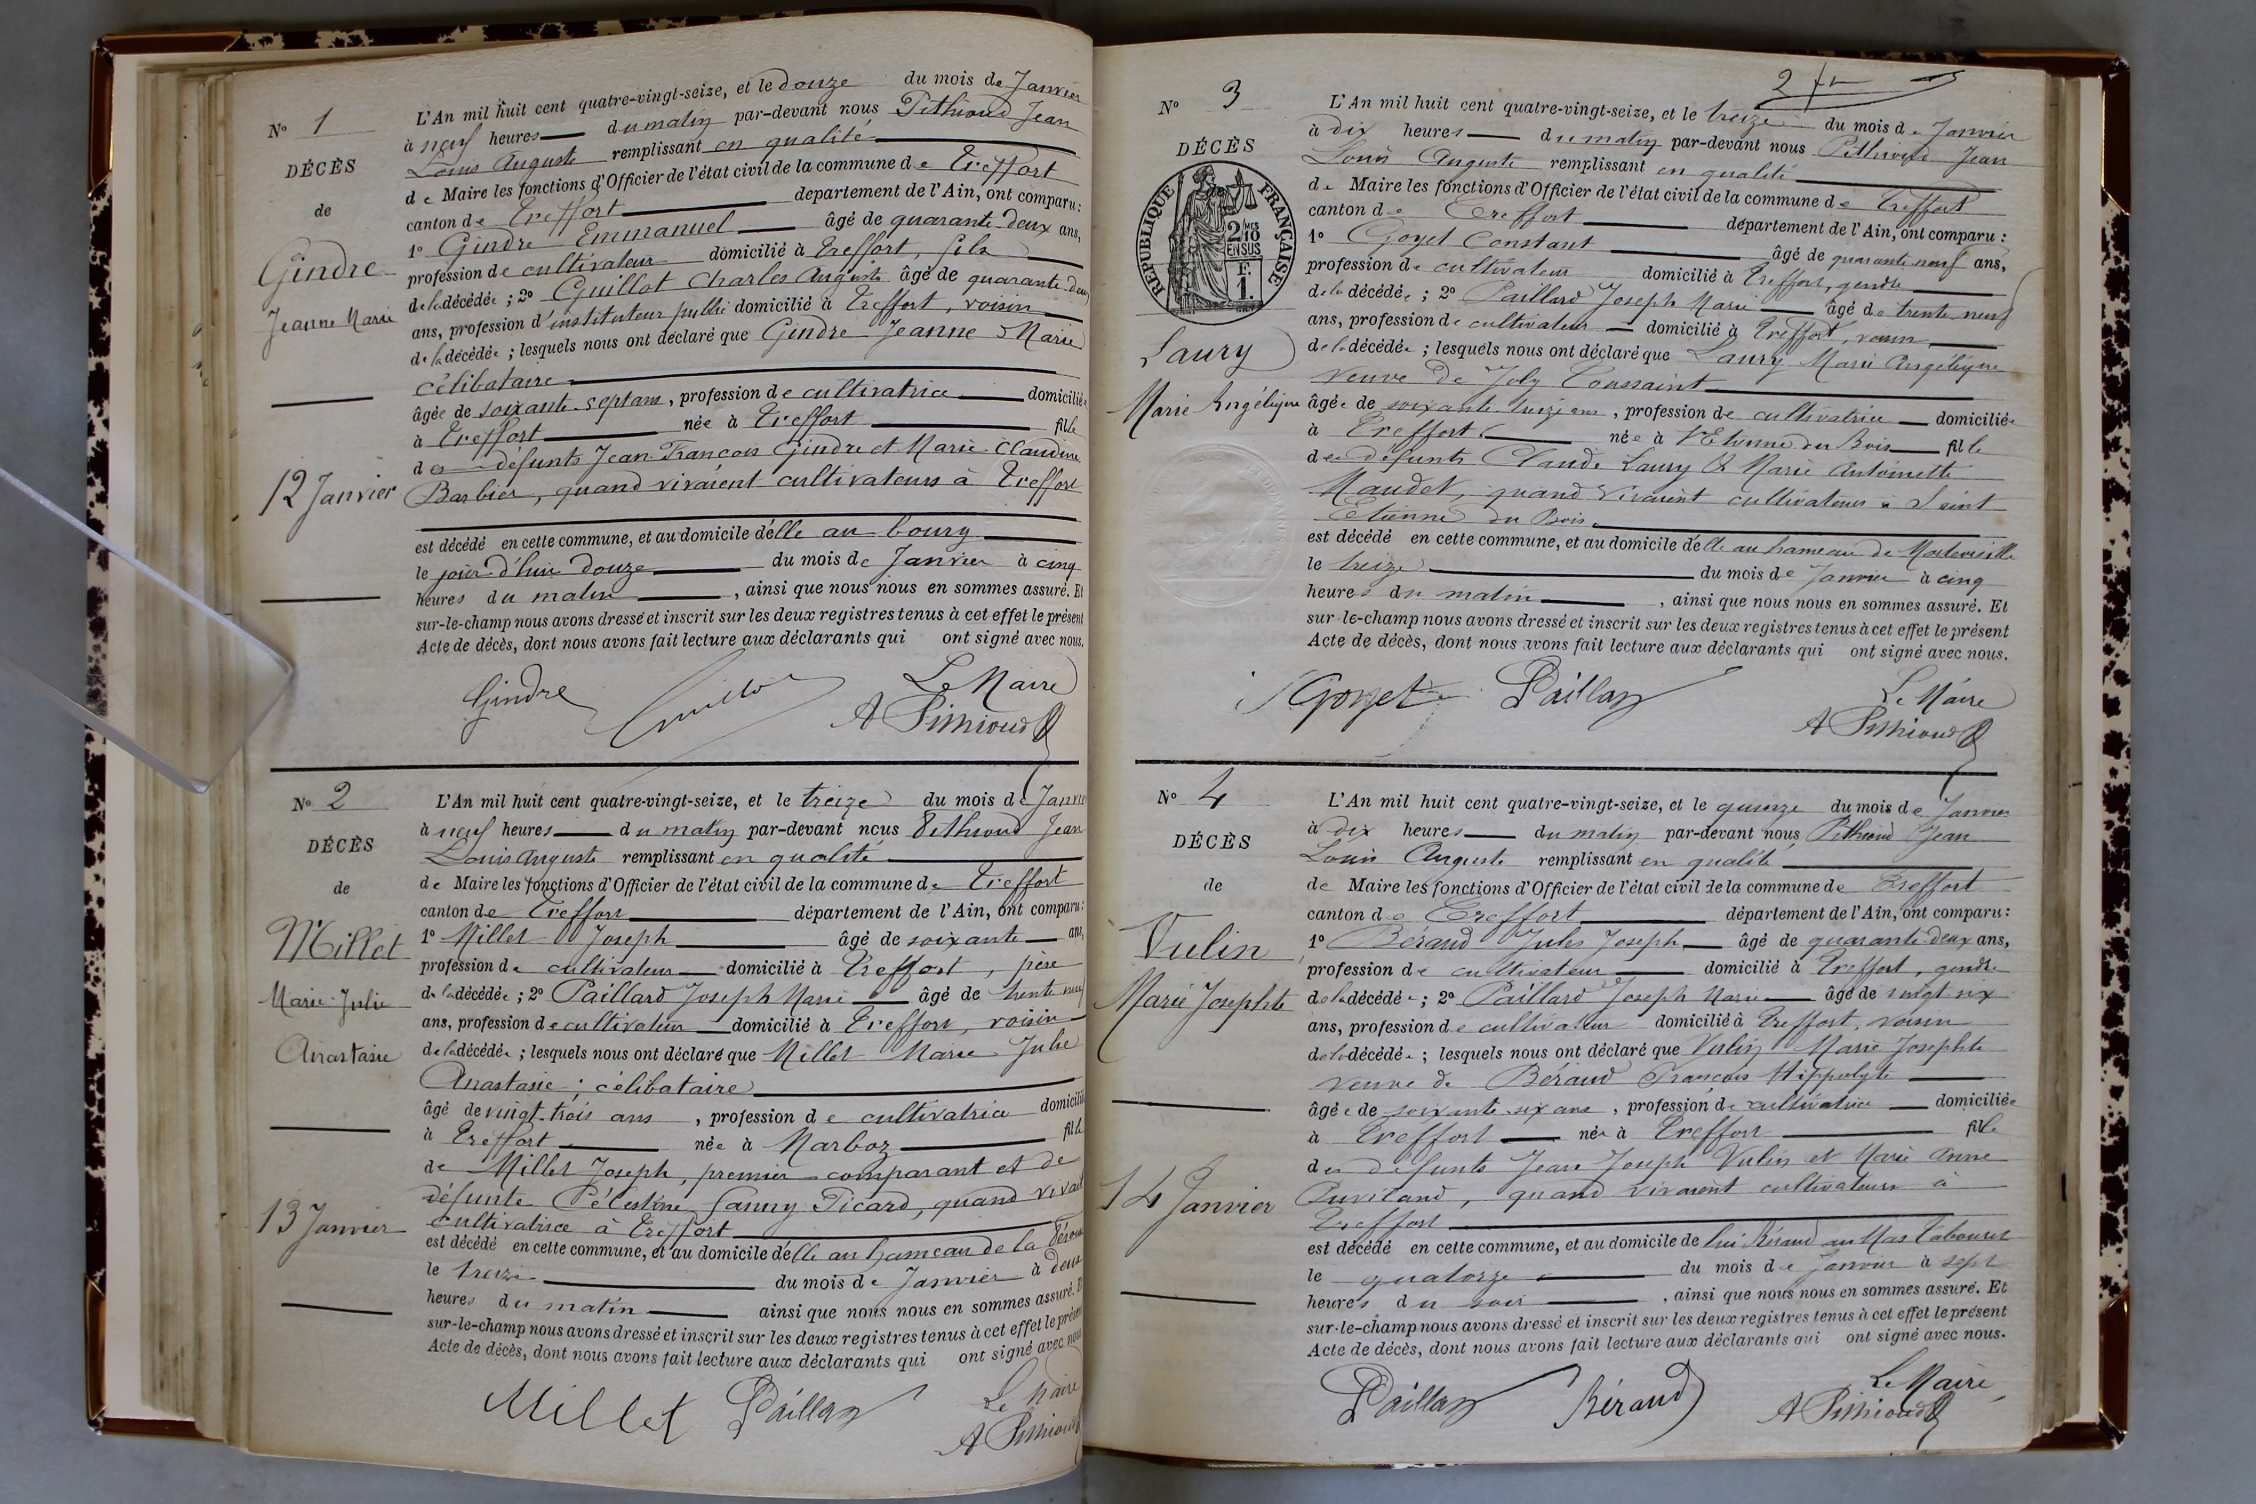 N° 1
DÉCÈS
de
Gindre
Jeanne Marie
12 Janvier
L'An mil huit cent quatre-vingt-seize, et le douze du mois de Janvier
à neuf heures du matin par-devant nous Pithioud Jean
Louis Auguste remplissant en qualité
de Maire les fonctions d'Officier de l'état civil de la commune de Treffort
canton de Treffort département de l'Ain, ont comparu:
1° Gindre Emmanuel âgé de quarante-deux ans,
profession de cultivateur domicilié à Treffort, fils
de la décédée; 2° Guillot Charles Auguste âgé de quarante-deux
ans, profession d'instituteur public domicilié à Treffort, voisin
de la décédée; lesquels nous ont déclaré que Gindre Jeanne Marie
célibataire
âgée de soixante-sept ans, profession de cultivatrice domiciliée
à Treffort née à Treffort fille
des défunts Jean-François Gindre et Marie Claudine
Barbier, quand vivaient cultivateurs à Treffort
est décédé en cette commune, et au domicile d'elle au bourg
le jour d'hui douze du mois de Janvier à cinq
heures du matin, ainsi que nous nous en sommes assuré. Et
sur-le-champ nous avons dressé et inscrit sur les deux registres tenus à cet effet le présent
Acte de décès, dont nous avons fait lecture aux déclarants qui ont signé avec nous.
Gindre Guillot Le Maire
A Pithioud
N° 2
DÉCÈS
de
Millet
Marie-Julie
Anastasie
13 Janvier
L'An mil huit cent quatre-vingt-seize, et le treize du mois de Janvier
à neuf heures du matin par-devant nous Pithioud Jean
Louis Auguste remplissant en qualité
de Maire les fonctions d'Officier de l'état civil de la commune de Treffort
canton de Treffort département de l'Ain, ont comparu:
1° Millet Joseph âgé de soixante ans,
profession de cultivateur domicilié à Treffort, père
de la décédée; 2° Paillard Joseph Marie âgé de trente neuf
ans, profession de cultivateur domicilié à Treffort, voisin
de la décédée; lesquels nous ont déclaré que Millet Marie Julie
Anastasie; célibataire
âgé de vingt-trois ans, profession de cultivatrice domiciliée
à Treffort née à Marboz fille
de Millet Joseph, premier comparant et de
défunte Célestine Fanny Picard, quand vivait
cultivatrice à Treffort
est décédé en cette commune, et au domicile d'elle au hameau de la
le treize du mois de Janvier à deux
heures du matin ainsi que nous nous en sommes assuré. Et
sur-le-champ nous avons dressé et inscrit sur les deux registres tenus à cet effet le présent
Acte de décès, dont nous avons fait lecture aux déclarants qui ont signé avec nous
Millet Paillard Le Maire
A Pithioud
2
N° 3
DÉCÈS
RÉPUBLIQUE FRANÇAISE
2/10 EN SUS
F. 1.
Laury
Marie Angélique
L'An mil huit cent quatre-vingt-seize, et le treize du mois de Janvier
à dix heures du matin par-devant nous Pithioud Jean
Louis Auguste remplissant en qualité
de Maire les fonctions d'Officier de l'état civil de la commune de Treffort
canton de Treffort département de l'Ain, ont comparu:
1° Goyet Constant âgé de quarante-neuf ans,
profession de cultivateur domicilié à Treffort, gendre
de la décédée; 2° Paillard Joseph Marie âgé de trente neuf
ans, profession de cultivateur domicilié à Treffort, voisin
de la décédée; lesquels nous ont déclaré que Laury Marie Angélique
veuve de Joly Toussaint
âgée de soixante treize ans, profession de cultivatrice domiciliée
à Treffort née à St Etienne du Bois fille
des défunts Claude Laury & Marie Antoinette
Maudet, quand vivaient cultivateurs à Saint
Etienne du Bois
est décédé en cette commune, et au domicile d'elle au hameau de
le treize du mois de Janvier à cinq
heures du matin, ainsi que nous nous en sommes assuré. Et
sur-le-champ nous avons dressé et inscrit sur les deux registres tenus à cet effet le présent
Acte de décès, dont nous avons fait lecture aux déclarants qui ont signé avec nous.
Goyet Paillard Le Maire
A Pithioud
N° 4
DÉCÈS
de
Vulin
Marie Josephte
14 Janvier
L'An mil huit cent quatre-vingt-seize, et le quinze du mois de Janvier
à dix heures du matin par-devant nous Pithioud Jean
Louis Auguste remplissant en qualité
de Maire les fonctions d'Officier de l'état civil de la commune de Treffort
canton de Treffort département de l'Ain, ont comparu:
1° Béraud Jules Joseph âgé de quarante-deux ans,
profession de cultivateur domicilié à Treffort, gendre
de la décédée; 2° Paillard Joseph Marie âgé de vingt-six
ans, profession de cultivateur domicilié à Treffort, voisin
de la décédée; lesquels nous ont déclaré que Vulin Marie Josephte
veuve de Béraud François Hippolyte
âgée de soixante-six ans, profession de cultivatrice domiciliée
à Treffort née à Treffort fille
des défunts Jean Joseph Vulin et Marie Anne
Puvilland, quand vivaient cultivateurs à
Treffort
est décédé en cette commune, et au domicile de lui Béraud au Mas Tabouret
le quatorze du mois de Janvier à sept
heures du soir, ainsi que nous nous en sommes assuré. Et
sur-le-champ nous avons dressé et inscrit sur les deux registres tenus à cet effet le présent
Acte de décès, dont nous avons fait lecture aux déclarants qui ont signé avec nous.
Paillard Béraud Le Maire
A Pithioud